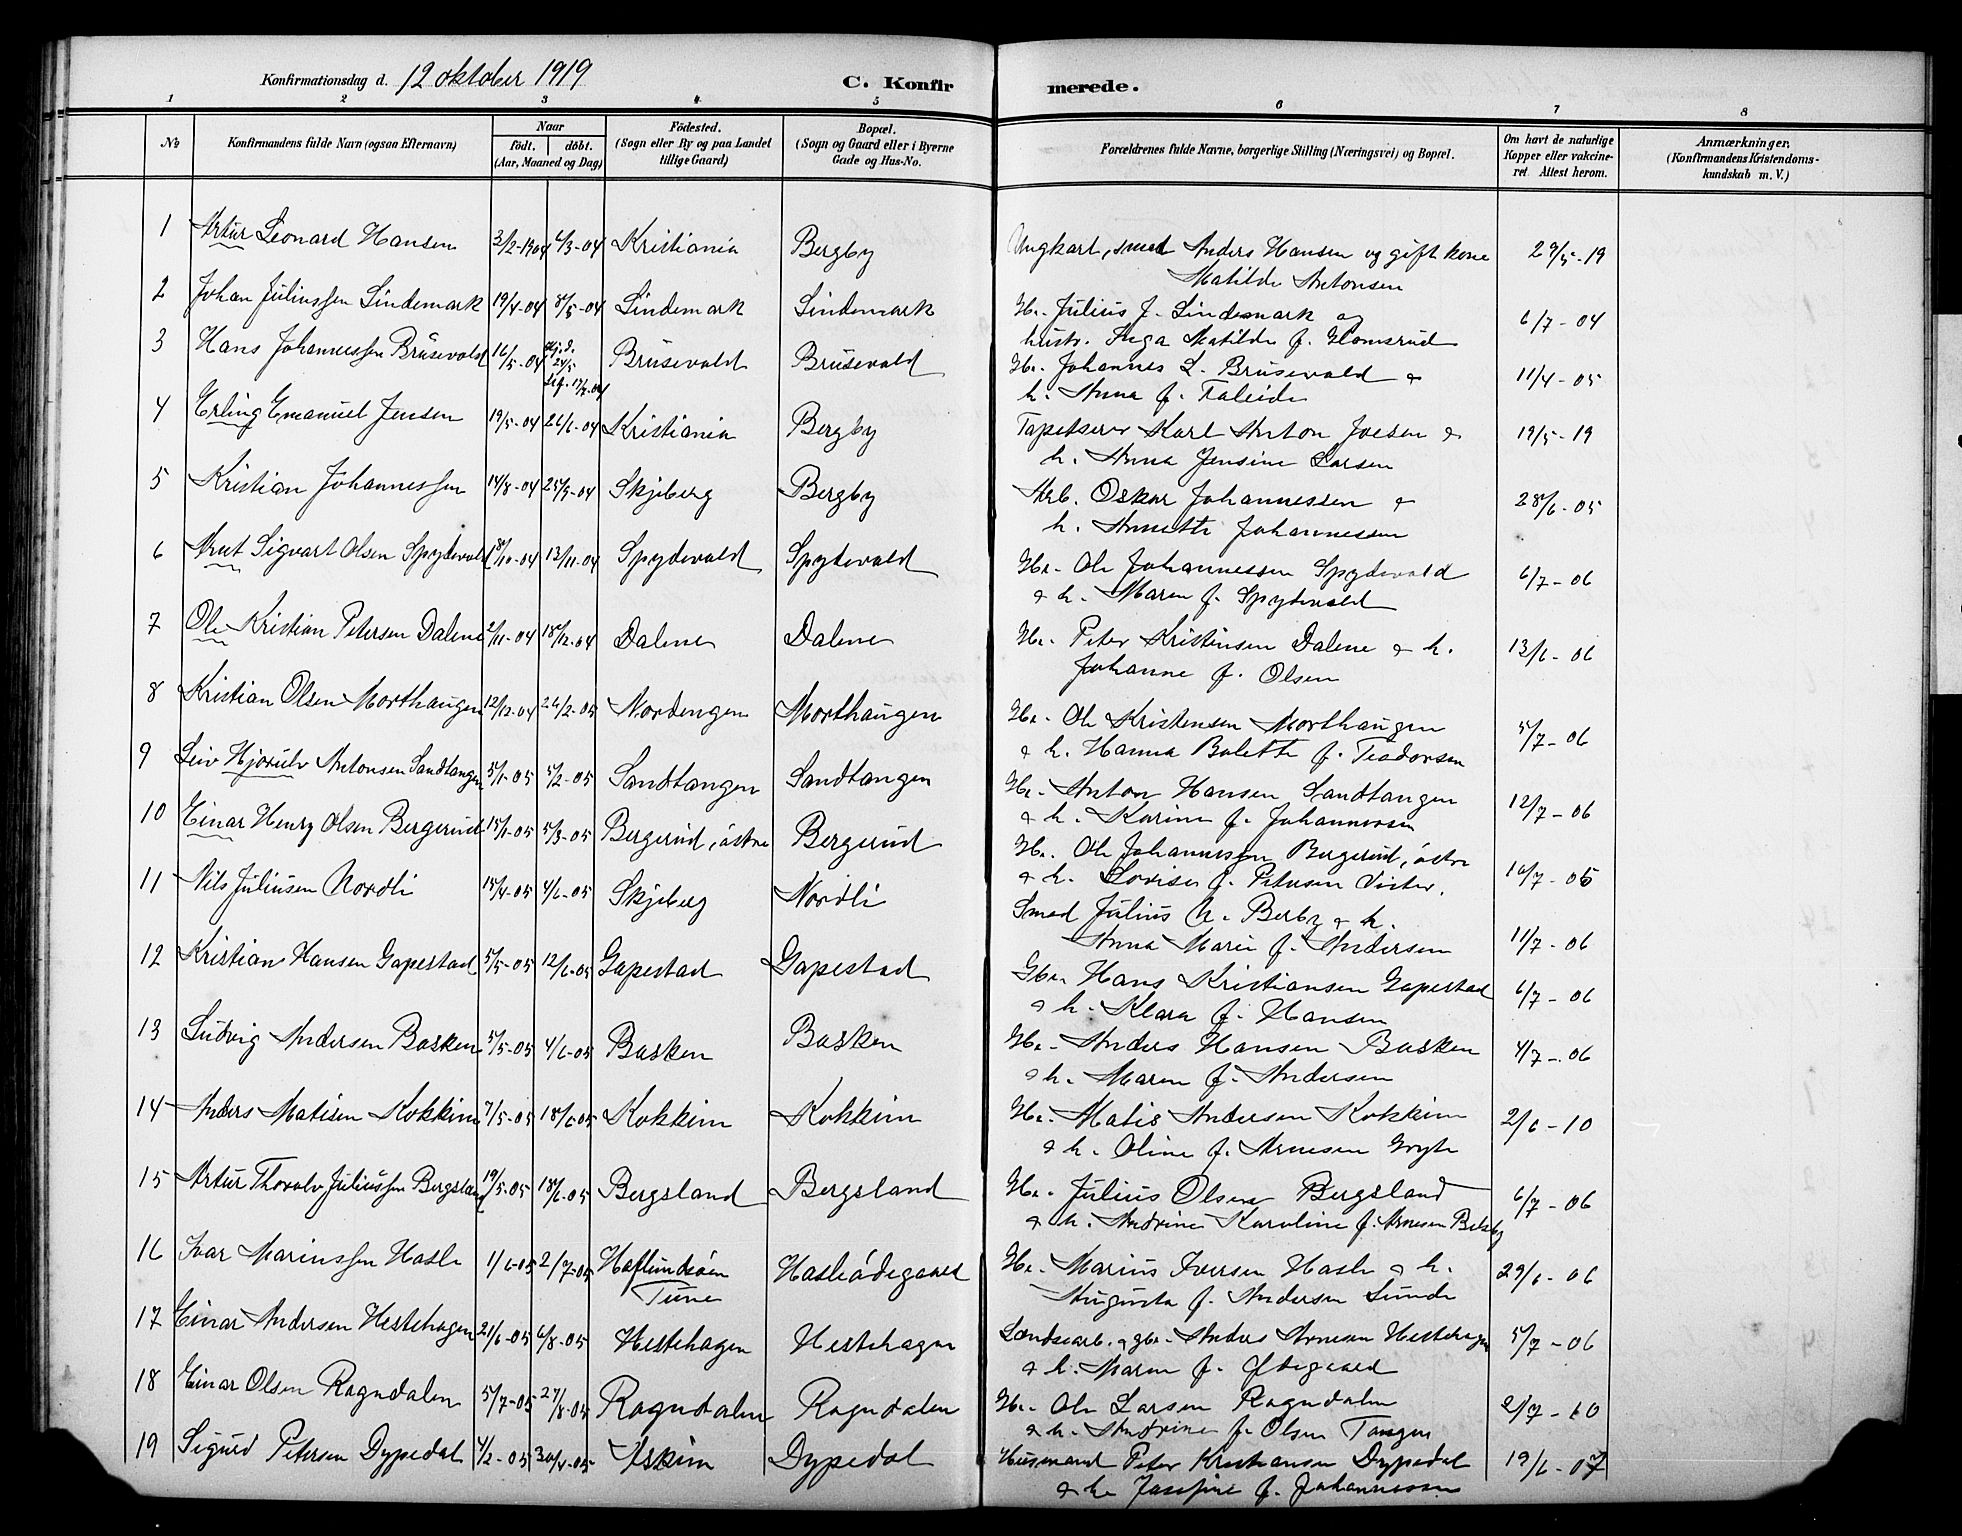 Konfirmationsdag d. 12 oktober 1919
C. Konfirmerede.
1 2 3 4 5 6 7 8
No
Konfirmandens fulde Navn (ogsaa Efternavn)
Naar
födt. döbt.
(Aar, Maaned og Dag)
Födested.
(Sogn eller By og paa Landet tillige Gaard)
Bopæl.
(Sogn og Gaard eller i Byerne Gade og Hus-No.
Forældrenes fulde Navne, borgerlige Stilling (Næringsvei) og Bopæl.
Om havt de naturlige Kopper eller vakcineret Attest herom.
Anmærkninger.
(Konfirmandens Kristendomskundskab m. V.)
1 Artur Leonard Hansen 3/2-1904 4/3-04 Kristiania Bergby Ungkarl, smed Anders Hansen og gift kone 29/5-19
Matilde Antonsen
2 Johan Juliussen Lindemark 19/4-04 8/5-04 Lindemark Lindemark Gbr. Julius J. Lindemark og 6/7-04
hustr. Inga Matilde f. Homsrud
3 Hans Johannessen Brusevold 16/5-04 Hj.d. 24/5 Brusevold Brusevold Gbr. Johannes L. Brusevold & 11/4-05
h. Anna f. Faleide
4 Erling Emanuel Jensen 19/5-04 26/6-04 Kristiania Bergby Tapetserer Karl Anton Jensen & 19/5-19
h. Anna Jensine Larsen
5 Kristian Johannessen 14/8-04 25/9-04 Skjeberg Bergby Arb. Oskar Johannessen & 28/6-05
h. Annette Johannessen
6 Arnt Sigvart Olsen Spydevold 18/10-04 13/11-04 Spydevold Spydevold Gbr. Ole Johannessen Spydevold 6/7-06
& h. Maren f. Spydevold
7 Ole Kristian Petersen Dalene 2/11-04 18/12-04 Dalene Dalene Gbr. Peter Kristensen Dalene & h. 13/6-06
Johanne f. Olsen
8 Kristian Olsen Morthaugen 12/12-04 26/2-05 Nordengen Morthaugen Gbr. Ole Kristensen Morthaugen 5/7-06
& h. Hanna Bolette f. Teodorsen
9 Leiv Hjørulv Antonsen Sandtangen 5/1-05 5/2-05 Sandtangen Sandtangen Gbr. Anton Hansen Sandtangen 12/7-06
& h. Karine f. Johannessen
10 Einar Henry Olsen Bergerud 15/1-05 5/3-05 Bergerud, östre Bergerud Gbr. Ole Johannessen Bergerud, östre 10/7-06
& h. Lovise f. Petersen
11 Nils Juliusen Nordli 15/4-05 4/6-05 Skjeberg Nordli Smed Julius N. Berby & h. 11/7-06
Anna Marie f. Andersen
12 Kristian Hansen Gapestad 5/5-05 12/6-05 Gapestad Gapestad Gbr. Hans Kristiansen Gapestad 6/7-06
& h. Klara f. Hansen
13 Ludvig Andersen Basken 5/5-05 4/6-05 Basken Basken Gbr. Anders Hansen Basken 4/7-06
& h. Maren f. Andersen
14 Anders Matisen Kokkim 7/5-05 18/6-05 Kokkim Kokkim Gbr. Matis Andersen Kokkim 2/6-10
& h. Oline f. Arnesen
15 Artur Thorolv Juliussen Bergsland 19/5-05 18/6-05 Bergsland Bergsland Gbr. Julius Olsen Bergsland 6/7-06
& h. Andrine Karoline f. Arnesen
16 Ivar Mariussen Hasle 1/6-05 2/7-05 Haflundsöen Hasleödegaard Gbr. Marius Iversen Hasle & h. 29/6-06
Tune Augusta f. Andersen Sunde
17 Einar Andersen Hestehagen 21/6-05 6/8-05 Hestehagen Hestehagen Landsearb. & gbr. Anders Arnesen Hestehagen 5/7-06
& h. Maren f. Ödegaard
18 Einar Olsen Ragndalen 5/7-05 27/8-05 Ragndalen Ragndalen Gbr. Ole Larsen Ragndalen 2/7-10
& h. Andrine f. Olsen Tangen
19 Sigurd Petersen Dypedal 4/2-05 30/4-05 Askim Dypedal Husmand Peter Kristiansen Dypedal 19/6-07
& h. Josefine f. Johannessen